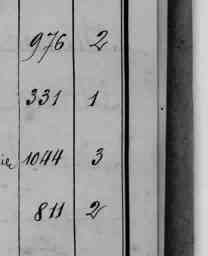 976 2
331 1
1044 3
811 2